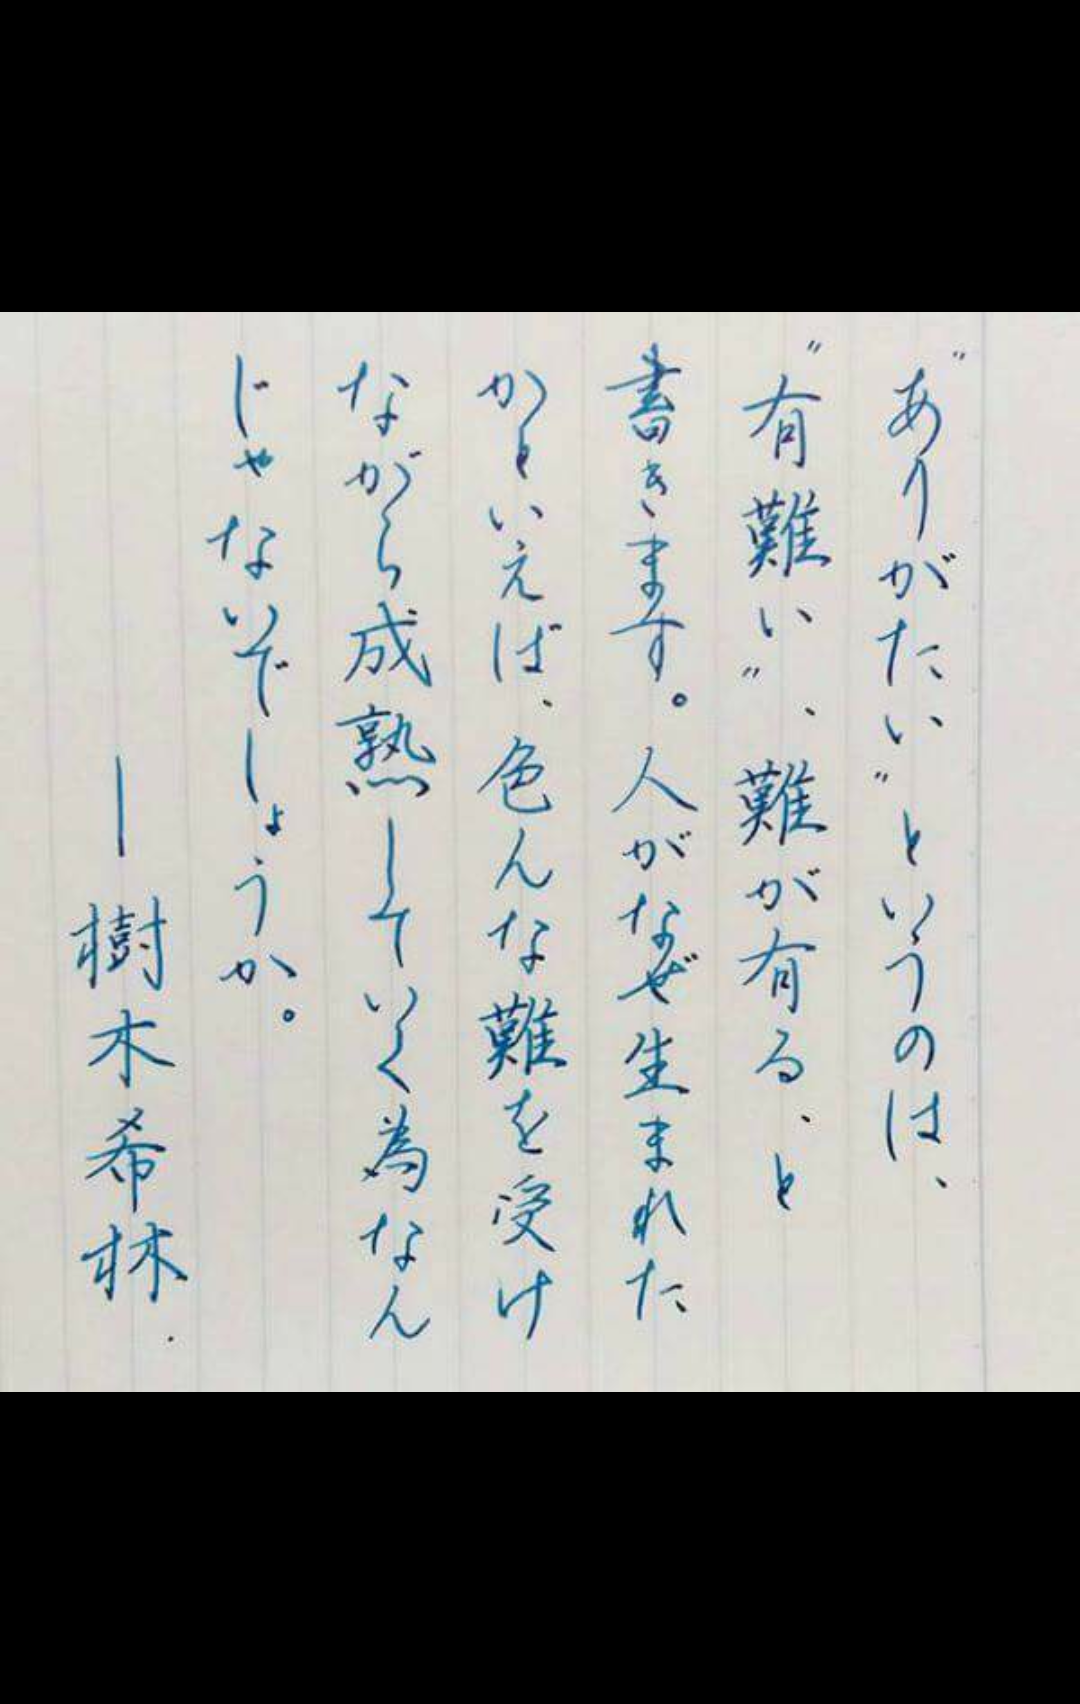 "ありがたい"というのは、
"有難い"、難が有る、と
書きます。人がなぜ生まれた
かといえば、色んな難を受け
ながら成熟していく為なん
じゃないでしょうか。
—樹木希林.